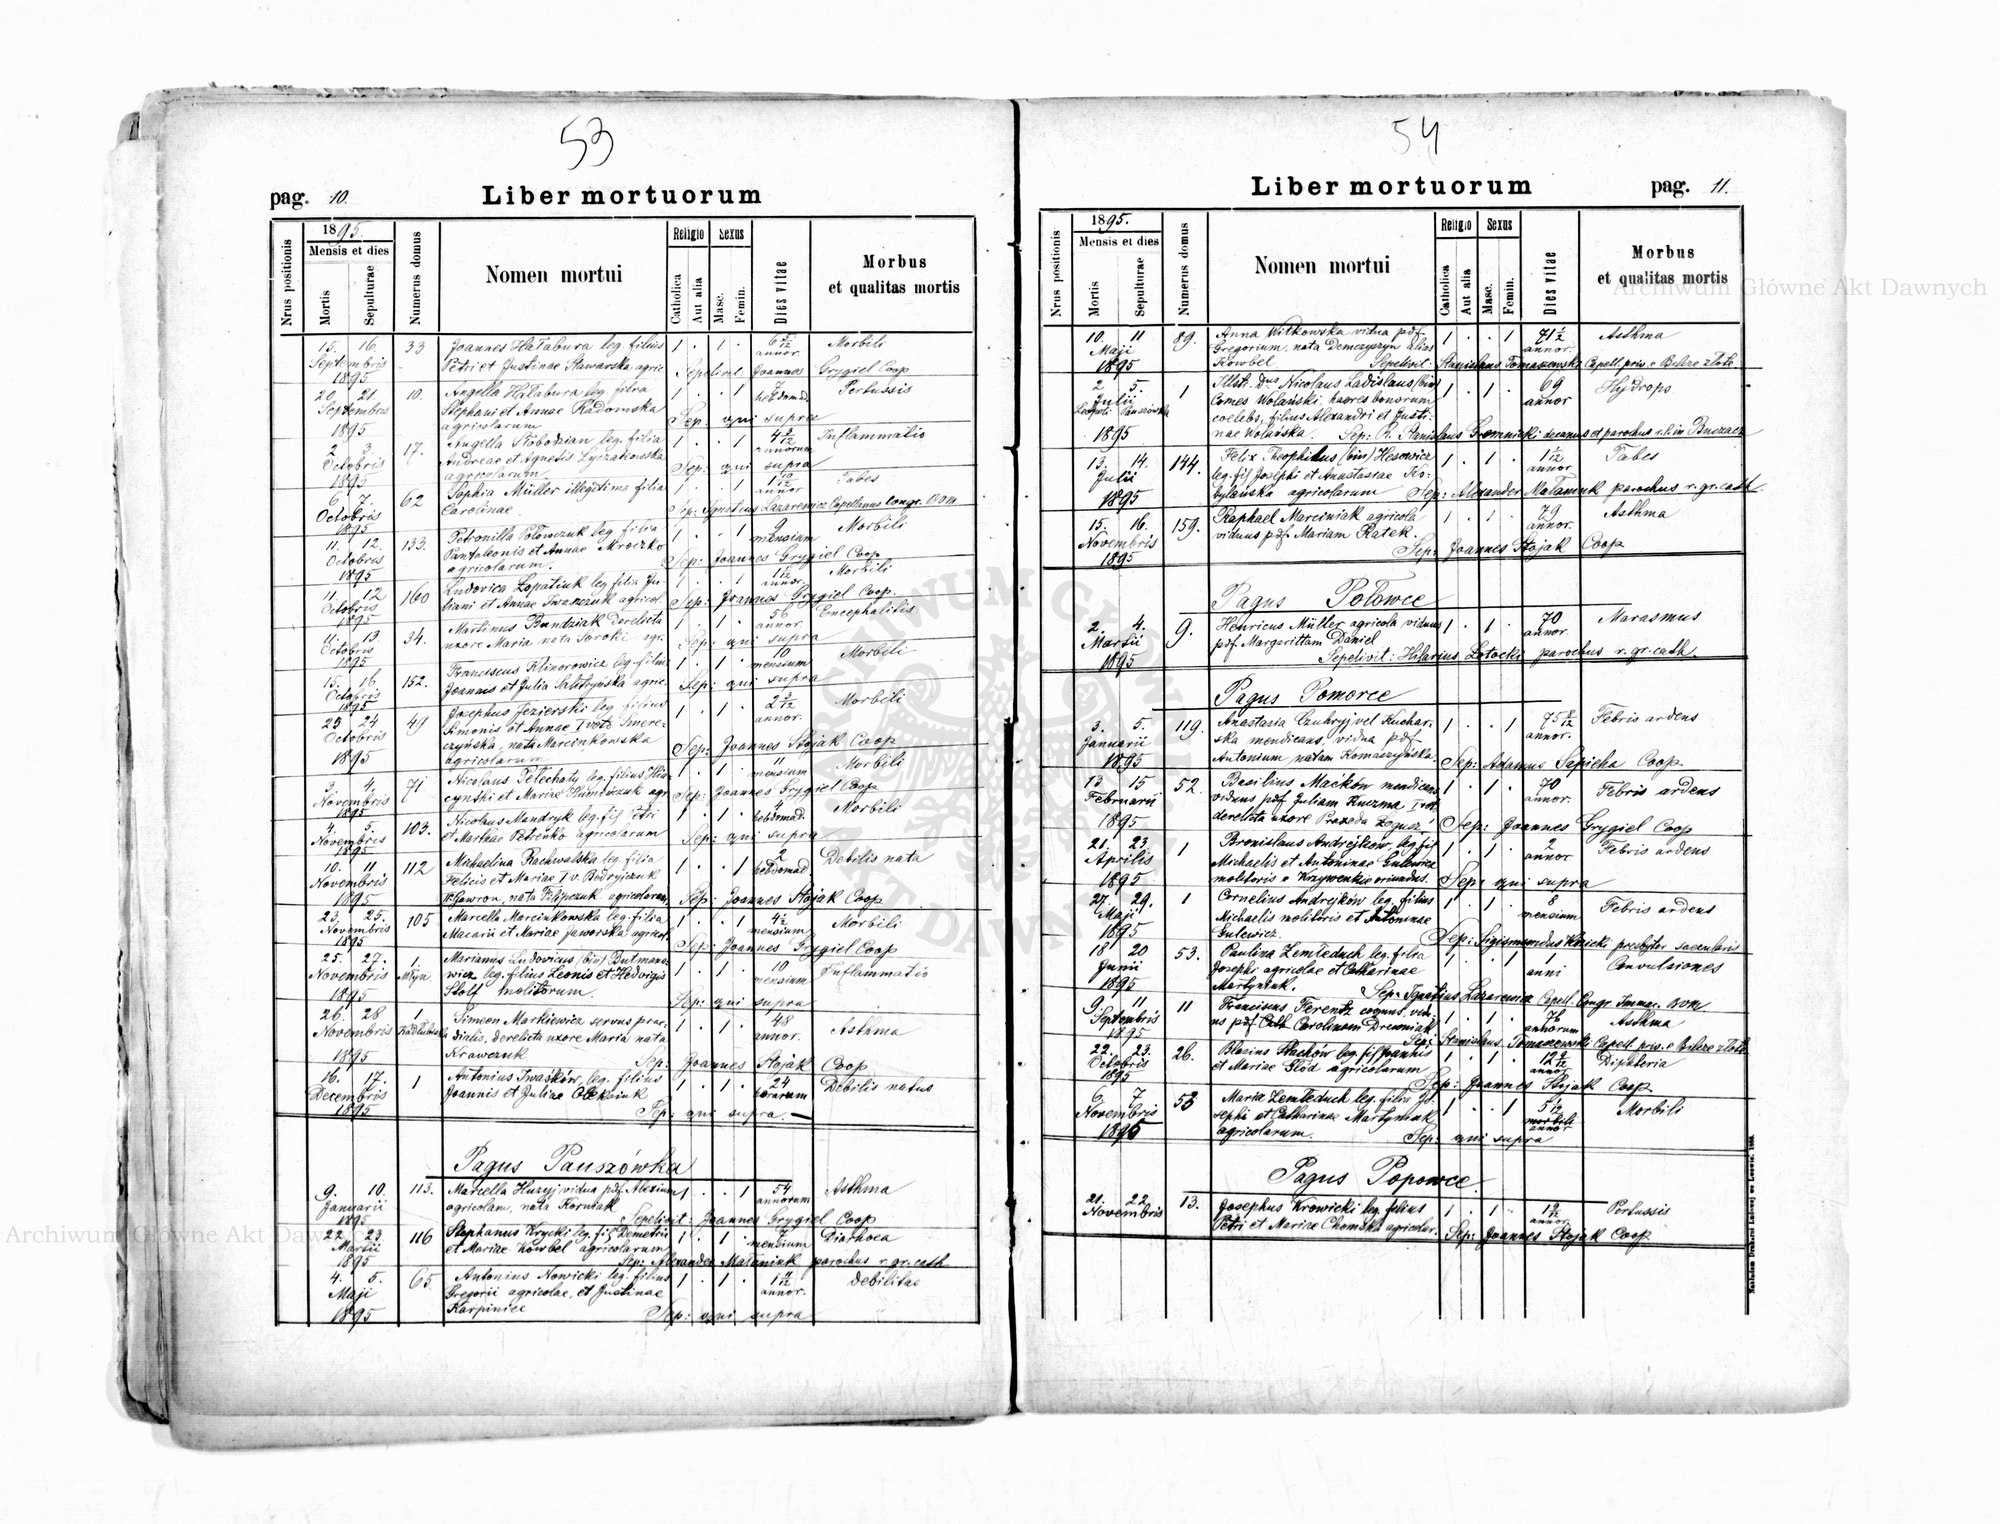 53
pag. 10.
Liber mortuorum
Nrus positionis
1895.
Mensis et dies
Mortis
Sepulturae
Numerus domus
Nomen mortui
Religio
Catholica
Aut alia
Sexus
Masc.
Femin.
Dies vitae
Morbus
et qualitas mortis
15. 16. 33 Joannes Hałabura leg. filius 1 · 1 · 6 5/12 Morbili
Septembris Petri et Justinae Sławarska agric annor.
1895 Sepelivit Joannes Grygiel Coop
20. 21. 10. Angella Hałabura leg. filia 1 · · 1 7 Pertussis
Septembris Stephani et Annae Radomska hebdomad.
1895 agricolarum Sep. qui supra
2 3. 17. Angella Słobodzian leg. filia 1 · · 1 Inflammatio
Octobris Andreae et Agnetis Łyczakowska annorum
1895 agricolarum Sep: qui supra
6 7. 62 Sophia Müller illegitima filia 1 · · 1 Tabes
Octobris Carolinae. annor
1895 Sep: Ignatius Lazarewicz Capellanus Congr. BVM
11. 12. 133. Petronilla Połowczuk leg filia 1 · · 1 9 Morbili
Octobris Pantaleonis et Annae Mroczko mensium
1895 agricolarum. Sep: Joannes Grygiel Coop
11. 12 160 Ludovica Łopatiuk leg filia Ju- 1 · · 1 Morbili
Octobris liani et Annae Iwaszczuk agricol annor.
1895 Sep: Joannes Grygiel Coop.
11. 13 34. Martinus Bundziak derelicta 1 · 1 · 56 Encephalitis
Octobris uxore Maria nata Soroki agr. annor.
1895 Sep: qui supra
15. 16 152. Franciscus Klinorowicz leg. filius 1 · 1 · 10 Morbili
Octobris Joannis et Julia Salatryńska agric mensium
1895 Sep: qui supra
23 24 49 Josephus Jezierski leg filius 1 · 1 · Morbili
Octobris Simonis et Annae I voto Smere- annor.
czyńska, nata Marcinkowska
1895 agricolarum Sep: Joannes Stojak Coop
3. 4. 71 Nicolaus Telechaty leg. filius Hia- 1 · 1 · 11 Morbili
Novembris cynthi et Mariae agr mensium
1895 Sep: Joannes Grygiel Coop
4. 5. 103. Nicolaus Mandryk leg. fil Petri 1 · 1 · 4 Morbili
Novembris et Marthae Petruko agricolarum hebdomad.
1895 Sep: qui supra
10. 11 112 Michaelina Rachwalska leg. filia 1 · · 1 2 Debilis nata
Novembris Felicis et Mariae I v. Bodryjczuk hebdomad.
1895 Gawron, nata Filipczuk agricolarum Sep: Joannes Stojak Coop
23. 25. 105 Marcella Marcinkowska leg. filia 1 · · 1 4½ Morbili
Novembris Macarii et Mariae Jaworska agricol. mensium
1895 Sep: Joannes Grygiel Coop
25. 27. 1. Marianus Ludovicus (bin) Butmano- 1 · 1 · 10 Inflammatio
Novembris Młyn. wicz leg. filius Leonis et Hedvigis mensium
1895 Stolf molitorum. Sep: qui supra
26. 28 1 Simeon Markiewicz servus prae- 1 · 1 · 48 Asthma
Novembris dialis, derelicta uxore Maria nata annor.
1895 Krawczuk Sep. Joannes Stojak Coop
16. 17. 1 Antonius Iwasków, leg. filius 1 · 1 · 24 Debilis natus
Decembris Joannis et Juliae Oleksiuk horarum
1895 Sep: qui supra
Pagus Pauszówka
9. 10. 113. Marcella Huzyj vidua pdf. Alexium 1 · · 1 54 Asthma
Januarii agricolam, nata Korniak annorum
1895 Sepelivit: Joannes Grygiel Coop
22. 23. 116 Stephanus Krycki leg. fil Demetrii 1 · 1 · 7 Diarhoea
Martii et Mariae Kowbel agricolarum mensium
1895 Sep: Alexander Mataniuk parochus r. gr. cath
4. 5. 65. Antonius Nowicki leg. filius 1 · 1 · Debilitae
Maji Gregorii agricolae, et Justinae annor.
1895 Karpiniec Sep: qui supra
54
Liber mortuorum
pag. 11.
Nrus positionis
1895.
Mensis et dies
Mortis
Sepulturae
Numerus domus
Nomen mortui
Religio
Catholica
Aut alia
Sexus
Masc.
Femin.
Dies vitae
Morbus
et qualitas mortis
10. 11 89. Anna Witkowska vidua pdf. 1 · · 1 71½ Asthma
Maji Gregorium, nata Demczyszyn alias annor.
1895 Kowbel Sepelivit: Stanislaus Tomaszewski Capell. priv. e Biłcze złote
2 5. 1 Illstr. Dnus Nicolaus Ladislaus (bin) 1 · 1 · 69 Hydrops
Julii Comes Wolański haeres bonorum annor
Leopoli Pauszówka coelebs, filius Alexandri et Justi-
1895 nae Wolańska. Sep: R. Stanislaus Gromnicki decanus et parochus r. l. in Buczacz
13. 14. 144. Felix Theophilus (bin) Hesowicz 1 · 1 · 1½ Tabes
Julii leg. fil Josephi et Anastasiae Ko- annor
1895 bylańska agricolarum Sep: Alexander Mataniuk parochus r. gr. cath
15. 16. 159. Raphael Marciniak agricola 1 · 1 · 79 Asthma
Novembris viduus pdf. Mariam Ratek. annor.
1895 Sep: Joannes Stojak Coop
Pagus Połowce
2. 4. 9. Henricus Müller agricola viduus 1 · 1 · 70 Marasmus
Martii pdf. Margerittam Daniel annor.
1895 Sepelivit: Hilarius Łotocki parochus r. gr. cath.
Pagus Pomorce
3. 5. 119. Anastasia Czuhryj vel Kuchar- 1 · · 1 75 8/12 Febris ardens
Januarii ska mendicans, vidua pdf. annor.
1895 Antonium, natam Komaszyńska. Sep: Adamus Sapieha Coop
13 15 52. Basilius Maćków mendicans 1 · 1 · 70 Febris ardens
Februarii viduus pdf. Juliam Kuczma I vot. annor.
1895 derelicta uxore Praxeda Łogusz Sep: Joannes Grygiel Coop
21. 23. 1 Bronislaus Andrejków, leg fil 1 · 1 · 2 Febris ardens
Aprilis Michaelis et Antoninae Gulewicz annor
1895 molitoris e Krzywenkie oriundus. Sep: qui supra
27. 29. 1 Cornelius Andrejków leg. filius 1 · 1 · 8 Febris ardens
Maji Michaelis molitoris et Antoninae mensium
1895 Gulewicz. Sep: Sigismundus presbyter saecularis
18 20 53. Paulina Zemleduch leg. filia 1 · · 1 1 Convulsiones
Junii Josephi agricolae et Catharinae anni
1895 Martyniuk. Sep: Ignatius Lazarewicz Capell. Congr. Immac. BVM
9. 11 11 Franciscus Ferentz coquus, vidu- 1 · 1 · 76 Asthma
Septembris us pdf Carolinam Drewniak annorum
1895 Sep: Stanislaus Tomaszewski Capell. priv. e Biłcze złote
22. 23. 26. Blasius Stachów leg. fil Joannis 1 · 1 · Diphteria
Octobris et Mariae Głód agricolarum annor
1895 Sep: Joannes Stojak Coop.
6. 7 53 Maria Zemleduch leg. filia Jo- 1 · · 1 Morbili
Novembris sephi et Catharinae Martyniuk annor
1895 agricolarum. Sep: qui supra
Pagus Popowce
21. 22 13. Josephus Krowicki leg. filius 1 · 1 · Pertussis
Novembris Petri et Mariae Chomska agricolar. annor.
Sep: Joannes Stojak Coop
Nakładem Drukarni Ludowej we Lwowie.
Archiwum Główne Akt Dawnych
Archiwum Główne Akt Dawnych
ARCHIWUM GŁÓWNE AKT DAWNYCH